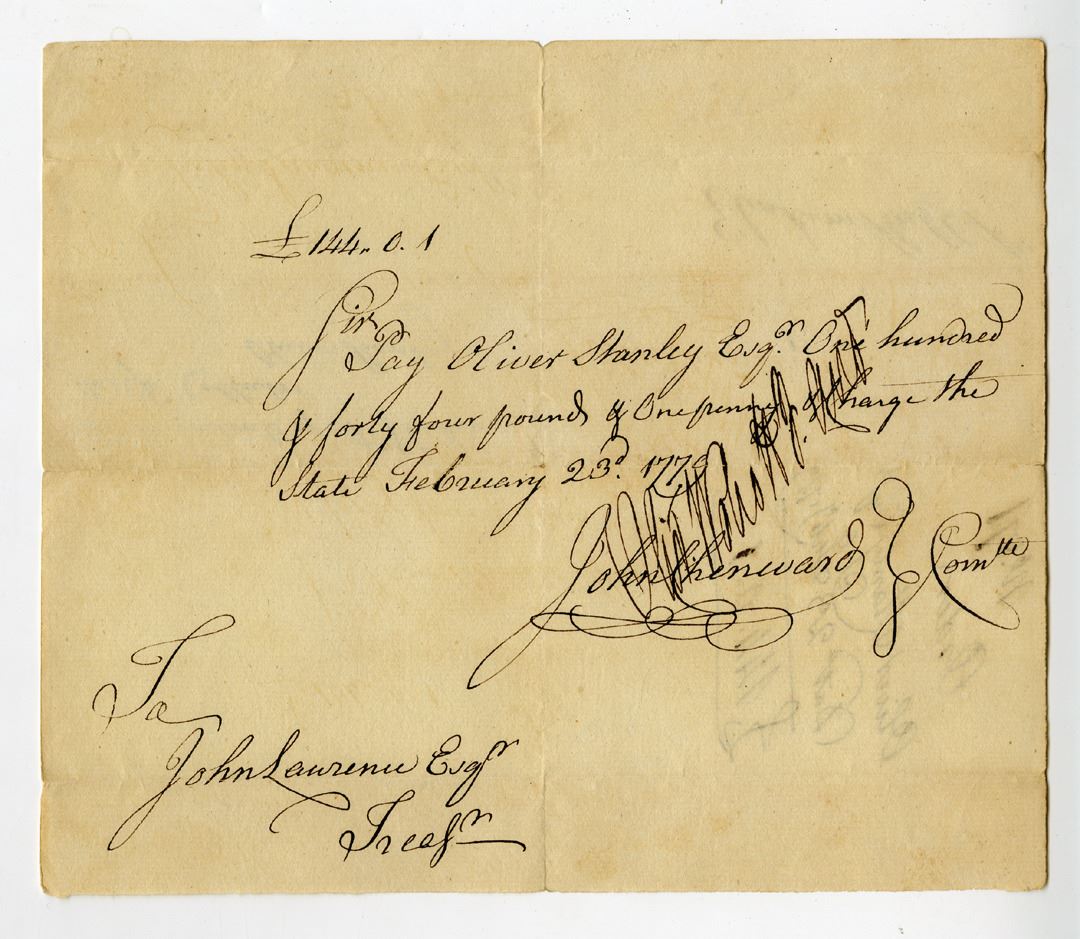 £144„ 0. 1
Sir
Pay Oliver Stanley Esqr. One hundred
& forty four pounds & One penny & Charge the
State February 23d. 177
John Chenward Comtte
To
John Lawrence Esqr
Treasr